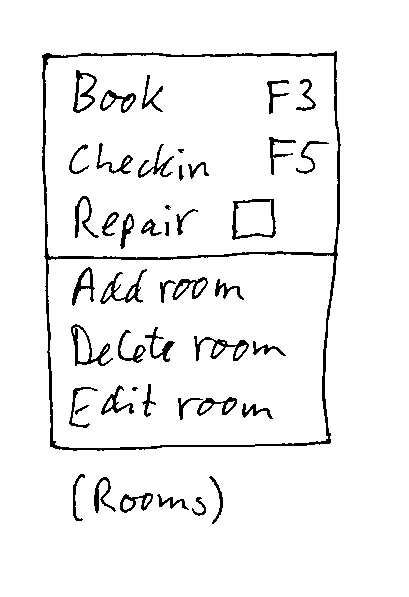 Book F3
Checkin F5
Repair
Add room
Delete room
Edit room
(Rooms)